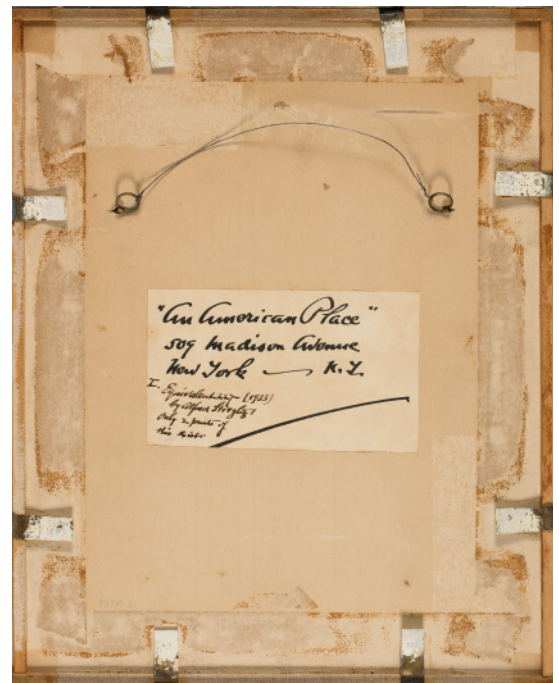 "An American Place"
509 Madison Avenue
New York — N.Y.
I. Equivalent (1923)
by Alfred Stieglitz
Only 2 prints of
this